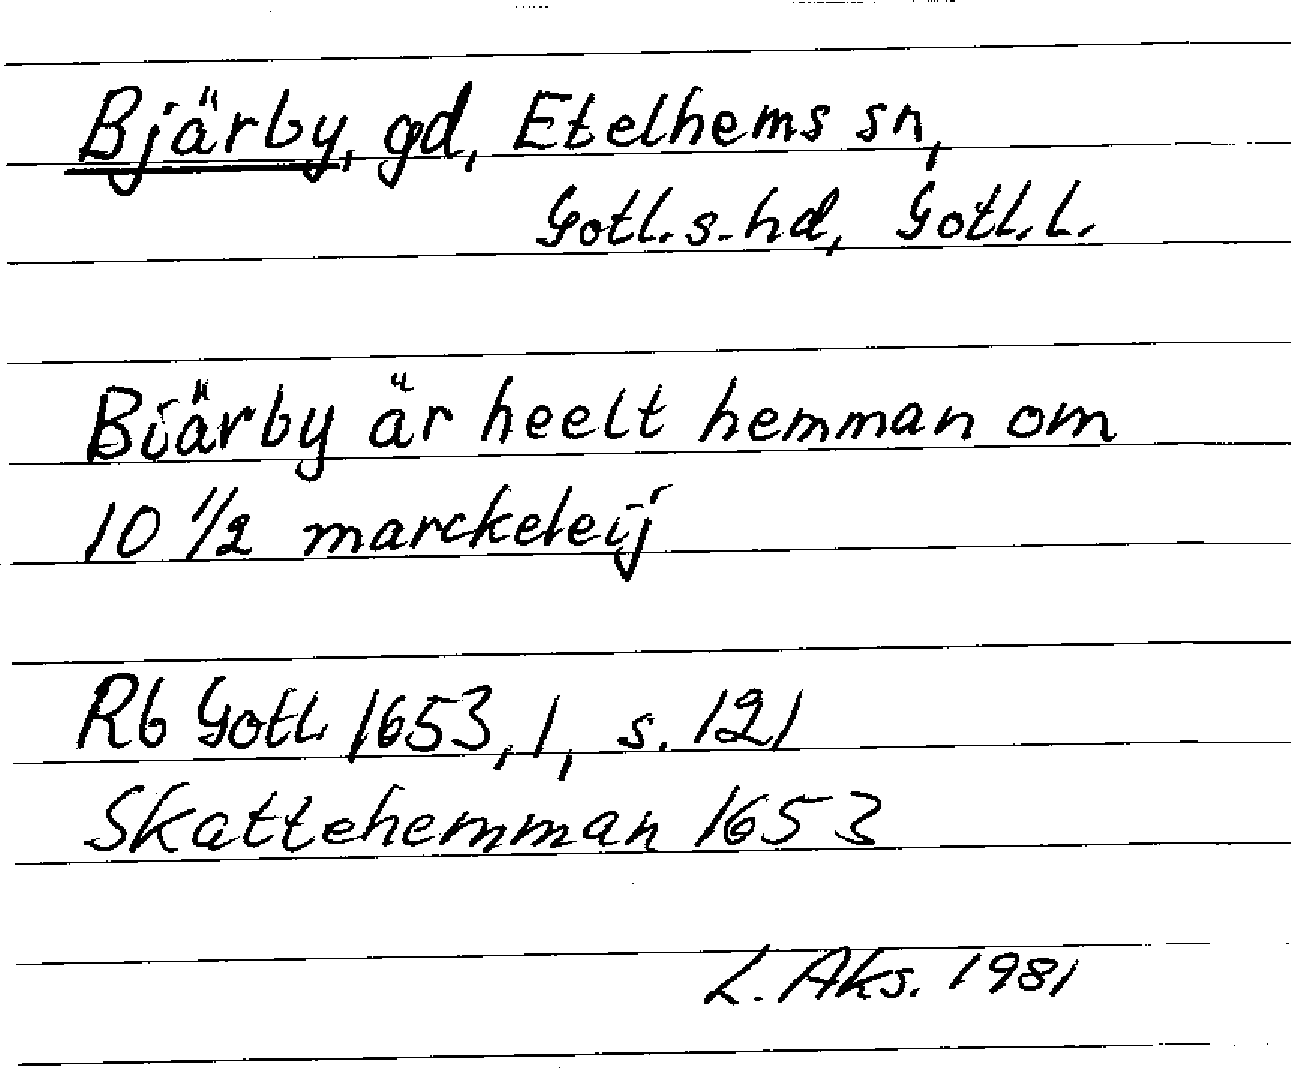 Bjärby, gd, Etelhems sn,
Gotl. s. hd, Gotl. l.
Biärby är heelt hemman om
10 1/2 marckeleij
Rb Gotl 1653, 1, s. 121
Skattehemman 1653
L. Aks. 1981